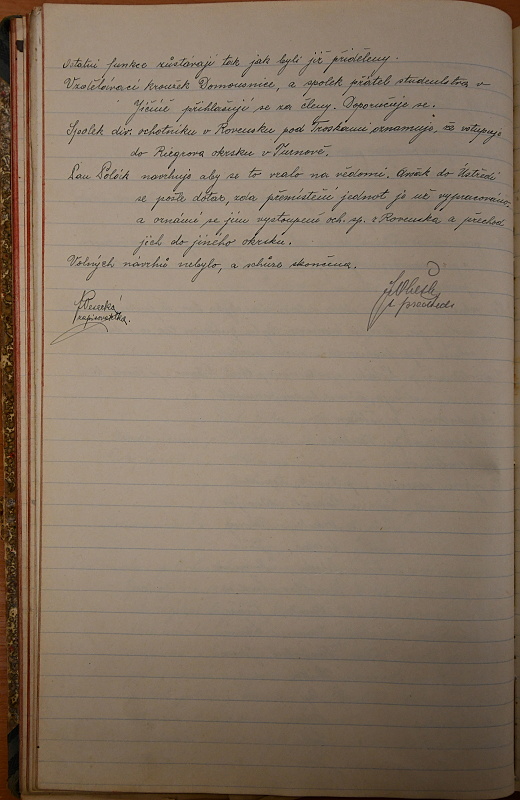 Ostatní funkce zůstávají tak jak byli již přiděleny.
Vzdělávací kroužek Domousnice, a spolek přátel studentstva v
Jičíně přihlašují se za členy. Doporučuje se.
Spolek div. ochotníku v Rovensku pod Troskami oznamuje, že vstupuje
do Riegrova okrsku v Turnově.
Pan navrhuje aby se to vzalo na vědomí. Avšak do Ústředí
se pošle dotaz, zda přemístění jednot je už vypracováno,
a oznámí se jim vystoupení och. sp. z Rovenska a přechod
jich do jiného okrsku.
Volných návrhů nebylo, a schůze skončena.
zapisovatelka.
t. předseda